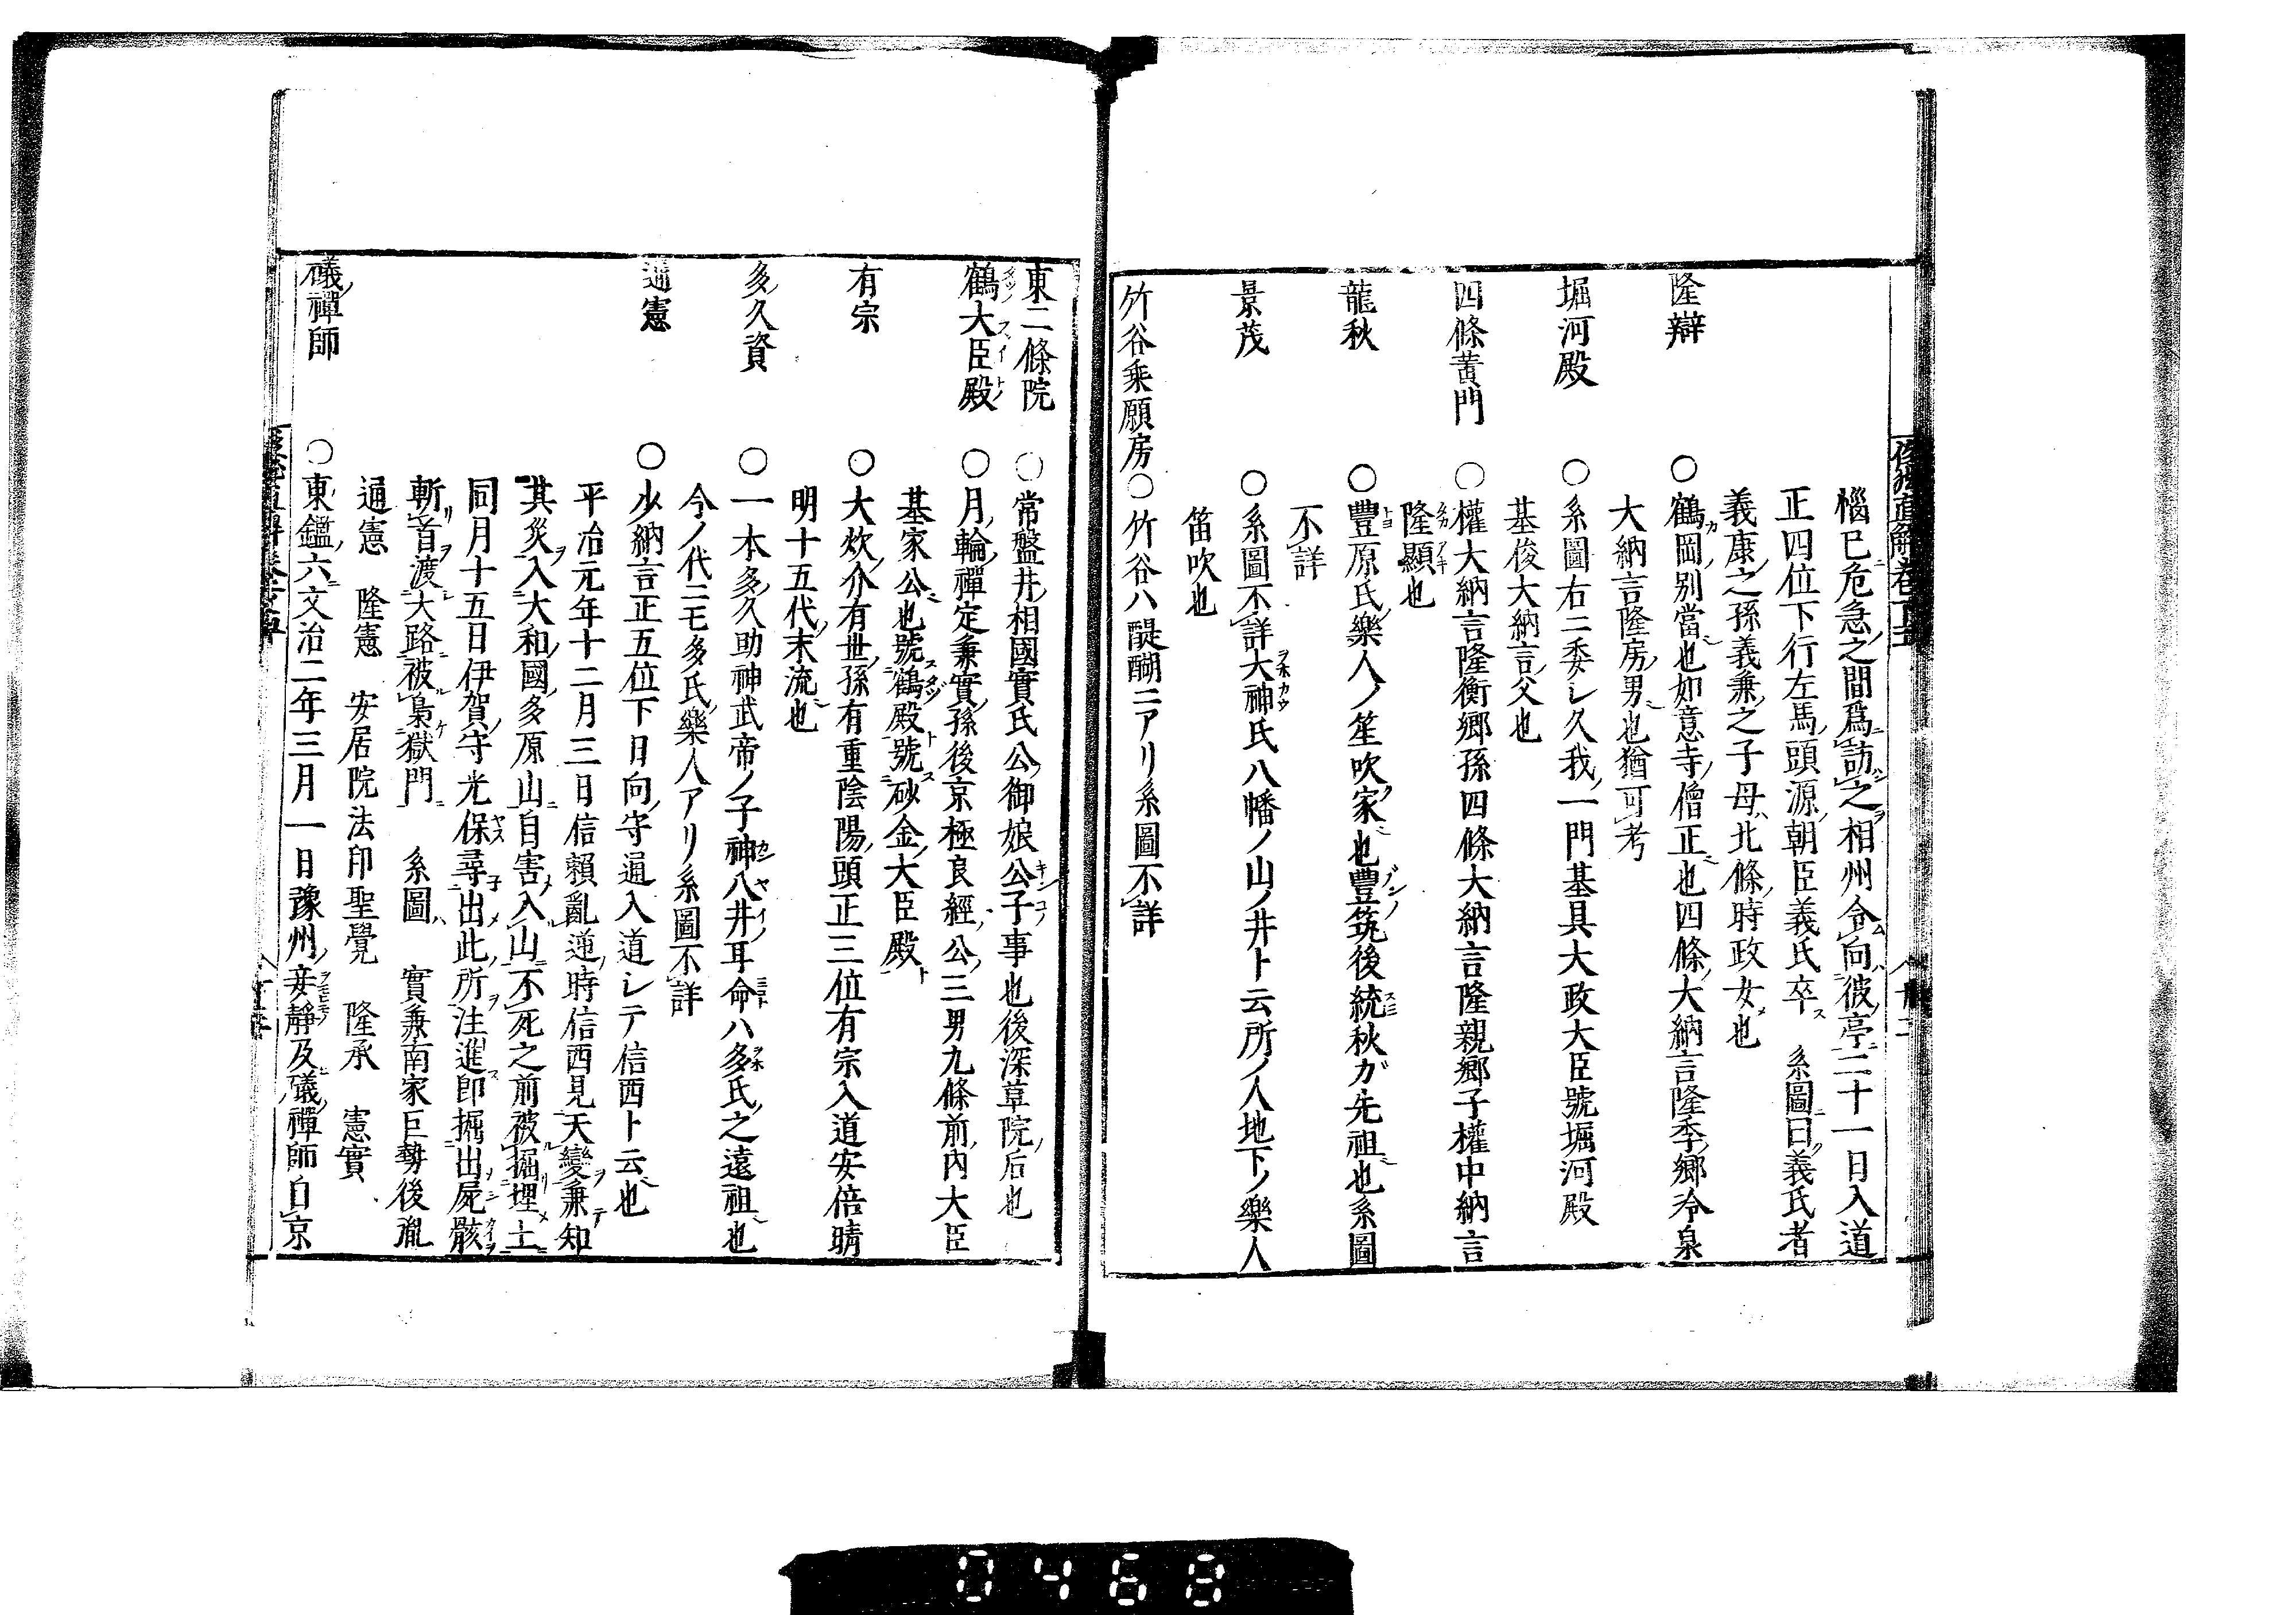 惱已危急之間爲訪之相州令向彼亭二十一日入道
正四位下行左馬頭源朝臣義氏卒 系圖曰義氏者
義康之孫義兼之子母北條時政女也
隆辯 ○鶴岡別當也如意寺僧正也四條大納言隆季郷冷泉
大納言隆房男也猶可考
堀河殿 ○系圖右ニ委シ久我一門基具大政大臣號堀河殿
基俊大納言父也
四條黄門 ○權大納言隆衡郷孫四條大納言隆親郷子權中納言
隆顯也
龍秋 ○豐原氏樂人ノ笙吹家也豐筑後統秋ガ先祖也系圖
不詳
景茂 ○系圖不詳大神氏八幡ノ山ノ井ト云所ノ人地下ノ樂人
笛吹也
竹谷乘願房 ○竹谷ハ醍醐ニアリ系圖不詳
東二條院 ○常盤井相國實氏公御娘公子事也後深草院后也
鶴大臣殿 ○月輪禪定兼實孫後京極良經公三男九條前内大臣
基家公也號鶴殿號砂金大臣殿
有宗 ○大炊介有世孫有重陰陽頭正三位有宗入道安倍晴
明十五代末流也
多久資 ○一本多久助神武帝ノ子神八井耳命ハ多氏之遠祖也
今ノ代ニモ多氏樂人アリ系圖不詳
通憲 ○少納言正五位下日向守通入道シテ信西ト云也
平治元年十二月三日信賴亂逆時信西見天變兼知
其災入大和國多原山自害入山不死之前被掘埋土
同月十五日伊賀守光保尋出此所注進即掘出屍骸
斬首渡大路被梟獄門 系圖 實兼南家巨勢後胤
通憲 隆憲 安居院法印聖覺 隆承 憲實
礒禪師 ○東鑑六文治二年三月一日豫州妾靜及礒禪師自京
0468